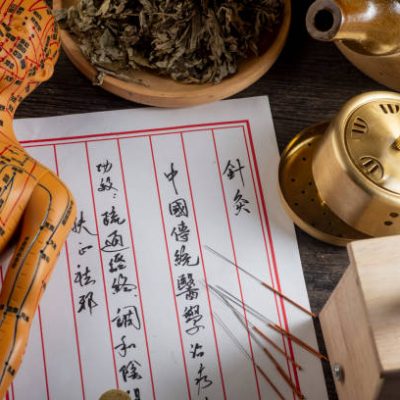 針灸
中國傳統醫學治療
功效：疏通經絡、調和陰
扶正祛邪